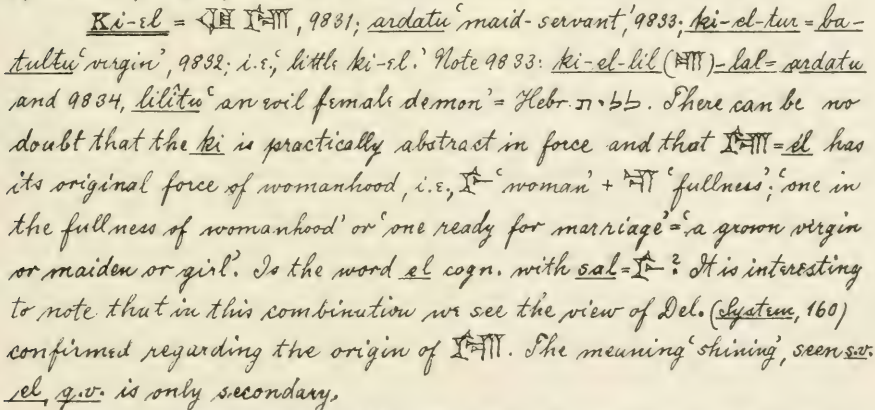 Ki-el = 𒆠 𒂖, 9831; ardatu 'maid-servant', 9833; ki-el-tur = ba-
tultu 'virgin', 9832; i.e., 'little ki-el.' Note 9833: ki-el-lil (𒆤)-lal = ardatu
and 9834, lilîtu 'an evil female demon' = Hebr. לילית. There can be no
doubt that the ki is practically abstract in force and that 𒂖 = el has
its original force of womanhood, i.e., 𒊩 'woman' + 𒆤 'fullness'; 'one in
the fullness of womanhood' or 'one ready for marriage' = 'a grown virgin
or maiden or girl'. Is the word el cogn. with sal = 𒊩? It is interesting
to note that in this combination we see the view of Del. (System, 160)
confirmed regarding the origin of 𒂖. The meaning 'shining', seen s.v.
el, q.v. is only secondary.